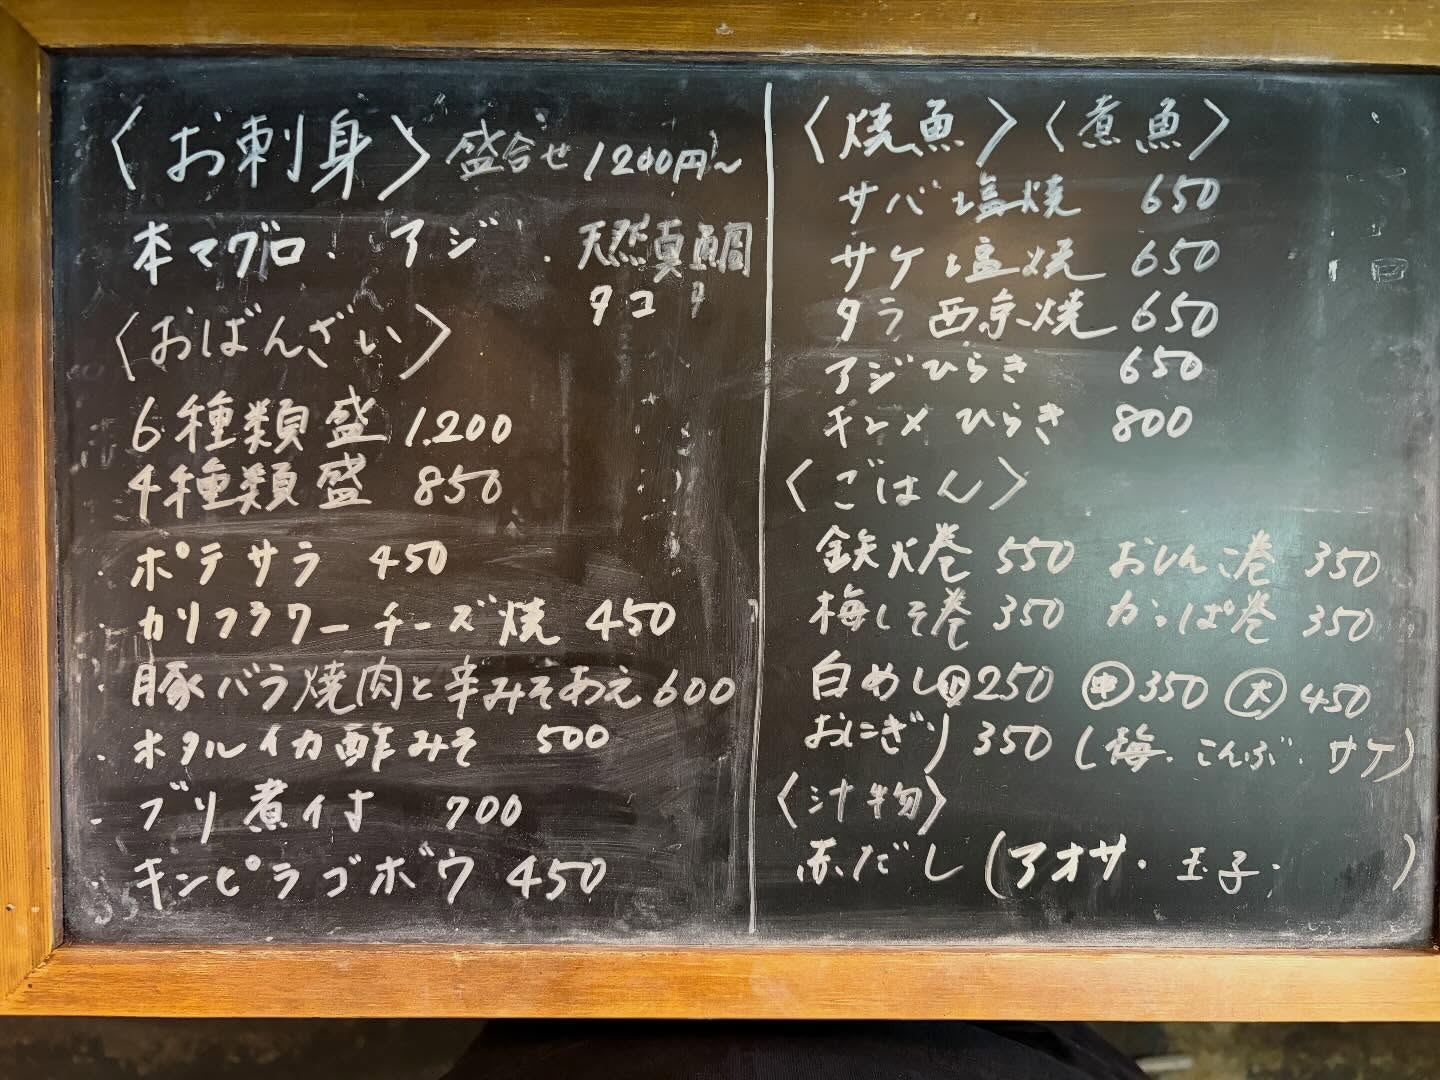 〈お刺身〉盛合せ 1200円〜
本マグロ・アジ・天然真鯛
タコ
〈おばんざい〉
6種類盛 1.200
4種類盛 850
・ポテサラ 450
・カリフラワーチーズ焼 450
・豚バラ焼肉と辛みそあえ 600
・ホタルイカ酢みそ 500
・ブリ煮付 700
・キンピラゴボウ 450
〈焼魚〉〈煮魚〉
サバ塩焼 650
サケ塩焼 650
タラ西京焼 650
アジひらき 650
キンメひらき 800
〈ごはん〉
鉄火巻 550 おしんこ巻 350
梅しそ巻 350 かっぱ巻 350
白めし小250 中350 大450
おにぎり 350 (梅・こんぶ・サケ)
〈汁物〉
赤だし (アオサ・玉子・ )